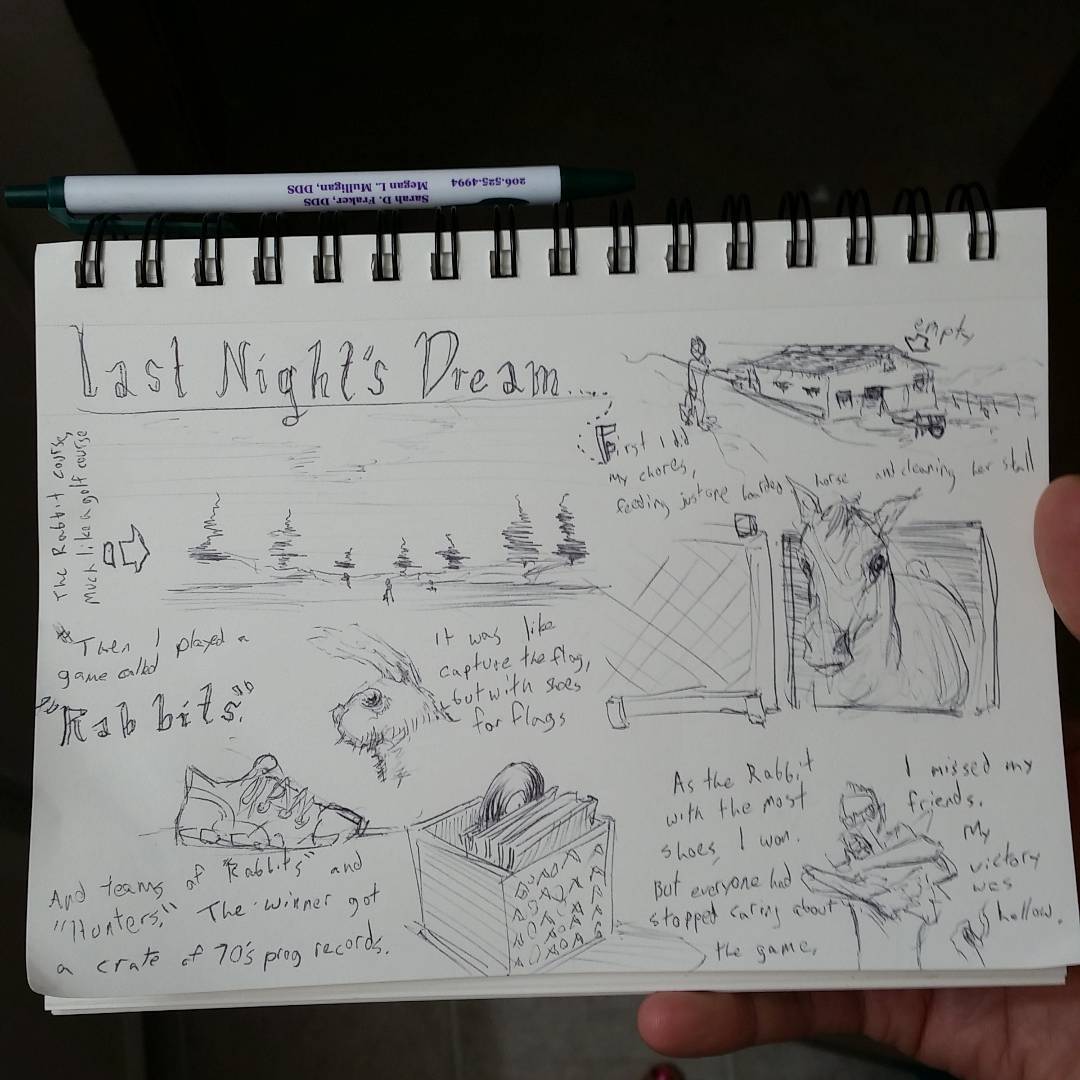 Sarah D. Fraker, DDS
Megan L. Mulligan, DDS
206.525.4994
Last Night's Dream....
empty
First I did
my chores,
feeding just one boarded horse and cleaning her stall
The Rabbit course,
Much like a golf course
Then I played a
game called
"Rabbits."
It was like
capture the flag,
but with shoes
for flags
And teams of "Rabbits" and
"Hunters." The winner got
a crate of 70's prog records.
As the Rabbit
with the most
shoes, I won.
But everyone had
stopped caring about
the game.
I missed my
friends.
My
victory
was
hollow.